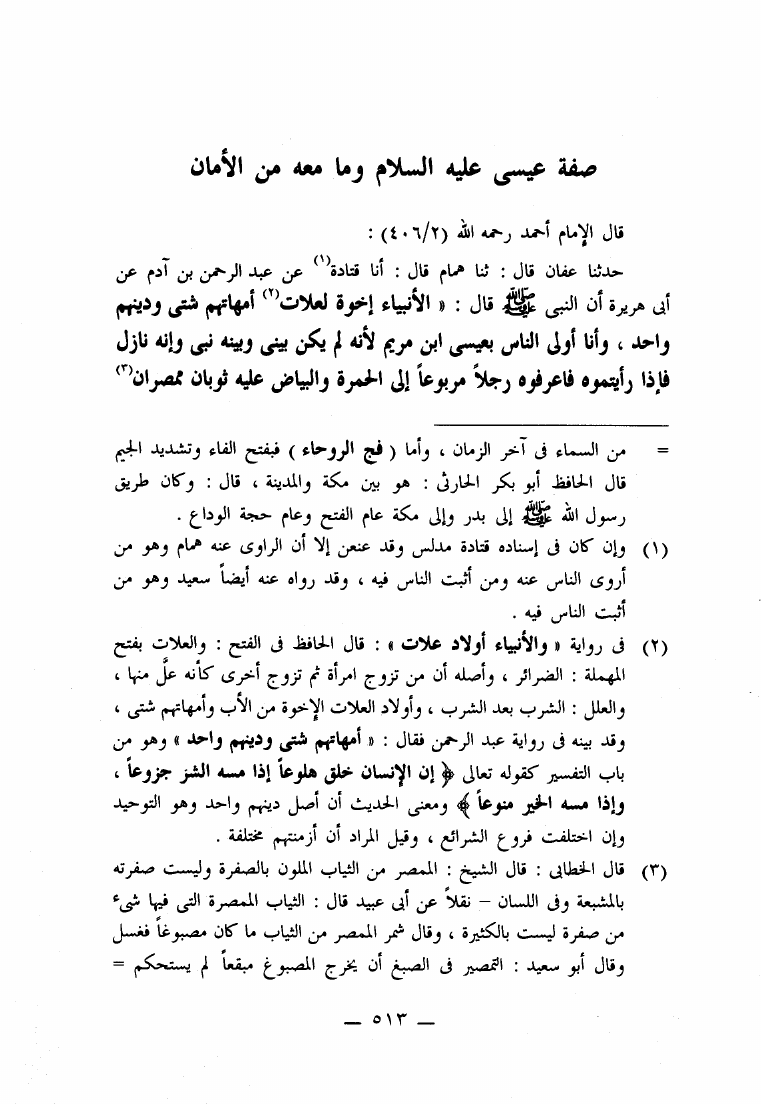 صفة عيسى عليه السلام وما معه من الأمان
قال الإمام أحمد رحمه الله (٤٠٦/٢) :
حدثنا عفان قال : ثنا همام قال : أنا قتادة(١) عن عبد الرحمن بن آدم عن
أبى هريرة أن النبى ﷺ قال : « الأنبياء إخوة لعلات(٢) أمهاتهم شتى ودينهم
واحد ، وأنا أولى الناس بعيسى ابن مريم لأنه لم يكن بينى وبينه نبى وإنه نازل
فإذا رأيتموه فاعرفوه رجلاً مربوعاً إلى الحمرة والبياض عليه ثوبان ممصران(٣)
= من السماء فى آخر الزمان ، وأما ( فج الروحاء ) فبفتح الفاء وتشديد الجيم
قال الحافظ أبو بكر الحارثى : هو بين مكة والمدينة ، قال : وكان طريق
رسول الله ﷺ إلى بدر وإلى مكة عام الفتح وعام حجة الوداع .
(١) وإن كان فى إسناده قتادة مدلس وقد عنعن إلا أن الراوى عنه همام وهو من
أروى الناس عنه ومن أثبت الناس فيه ، وقد رواه عنه أيضاً سعيد وهو من
أثبت الناس فيه .
(٢) فى رواية « والأنبياء أولاد علات » : قال الحافظ فى الفتح : والعلات بفتح
المهملة : الضرائر ، وأصله أن من تزوج امرأة ثم تزوج أخرى كأنه علَّ منها ،
والعلل : الشرب بعد الشرب ، وأولاد العلات الإخوة من الأب وأمهاتهم شتى ،
وقد بينه فى رواية عبد الرحمن فقال : « أمهاتهم شتى ودينهم واحد » وهو من
باب التفسير كقوله تعالى ﴿ إن الإنسان خلق هلوعاً إذا مسه الشر جزوعاً ،
وإذا مسه الخير منوعاً ﴾ ومعنى الحديث أن أصل دينهم واحد وهو التوحيد
وإن اختلفت فروع الشرائع ، وقيل المراد أن أزمنتهم مختلفة .
(٣) قال الخطابى : قال الشيخ : الممصر من الثياب الملون بالصفرة وليست صفرته
بالمشبعة وفى اللسان – نقلاً عن أبى عبيد قال : الثياب الممصرة التى فيها شىء
من صفرة ليست بالكثيرة ، وقال شمر الممصر من الثياب ما كان مصبوغاً فغسل
وقال أبو سعيد : التمصير فى الصبغ أن يخرج المصبوغ مبقعاً لم يستحكم =
— ٥١٣ —